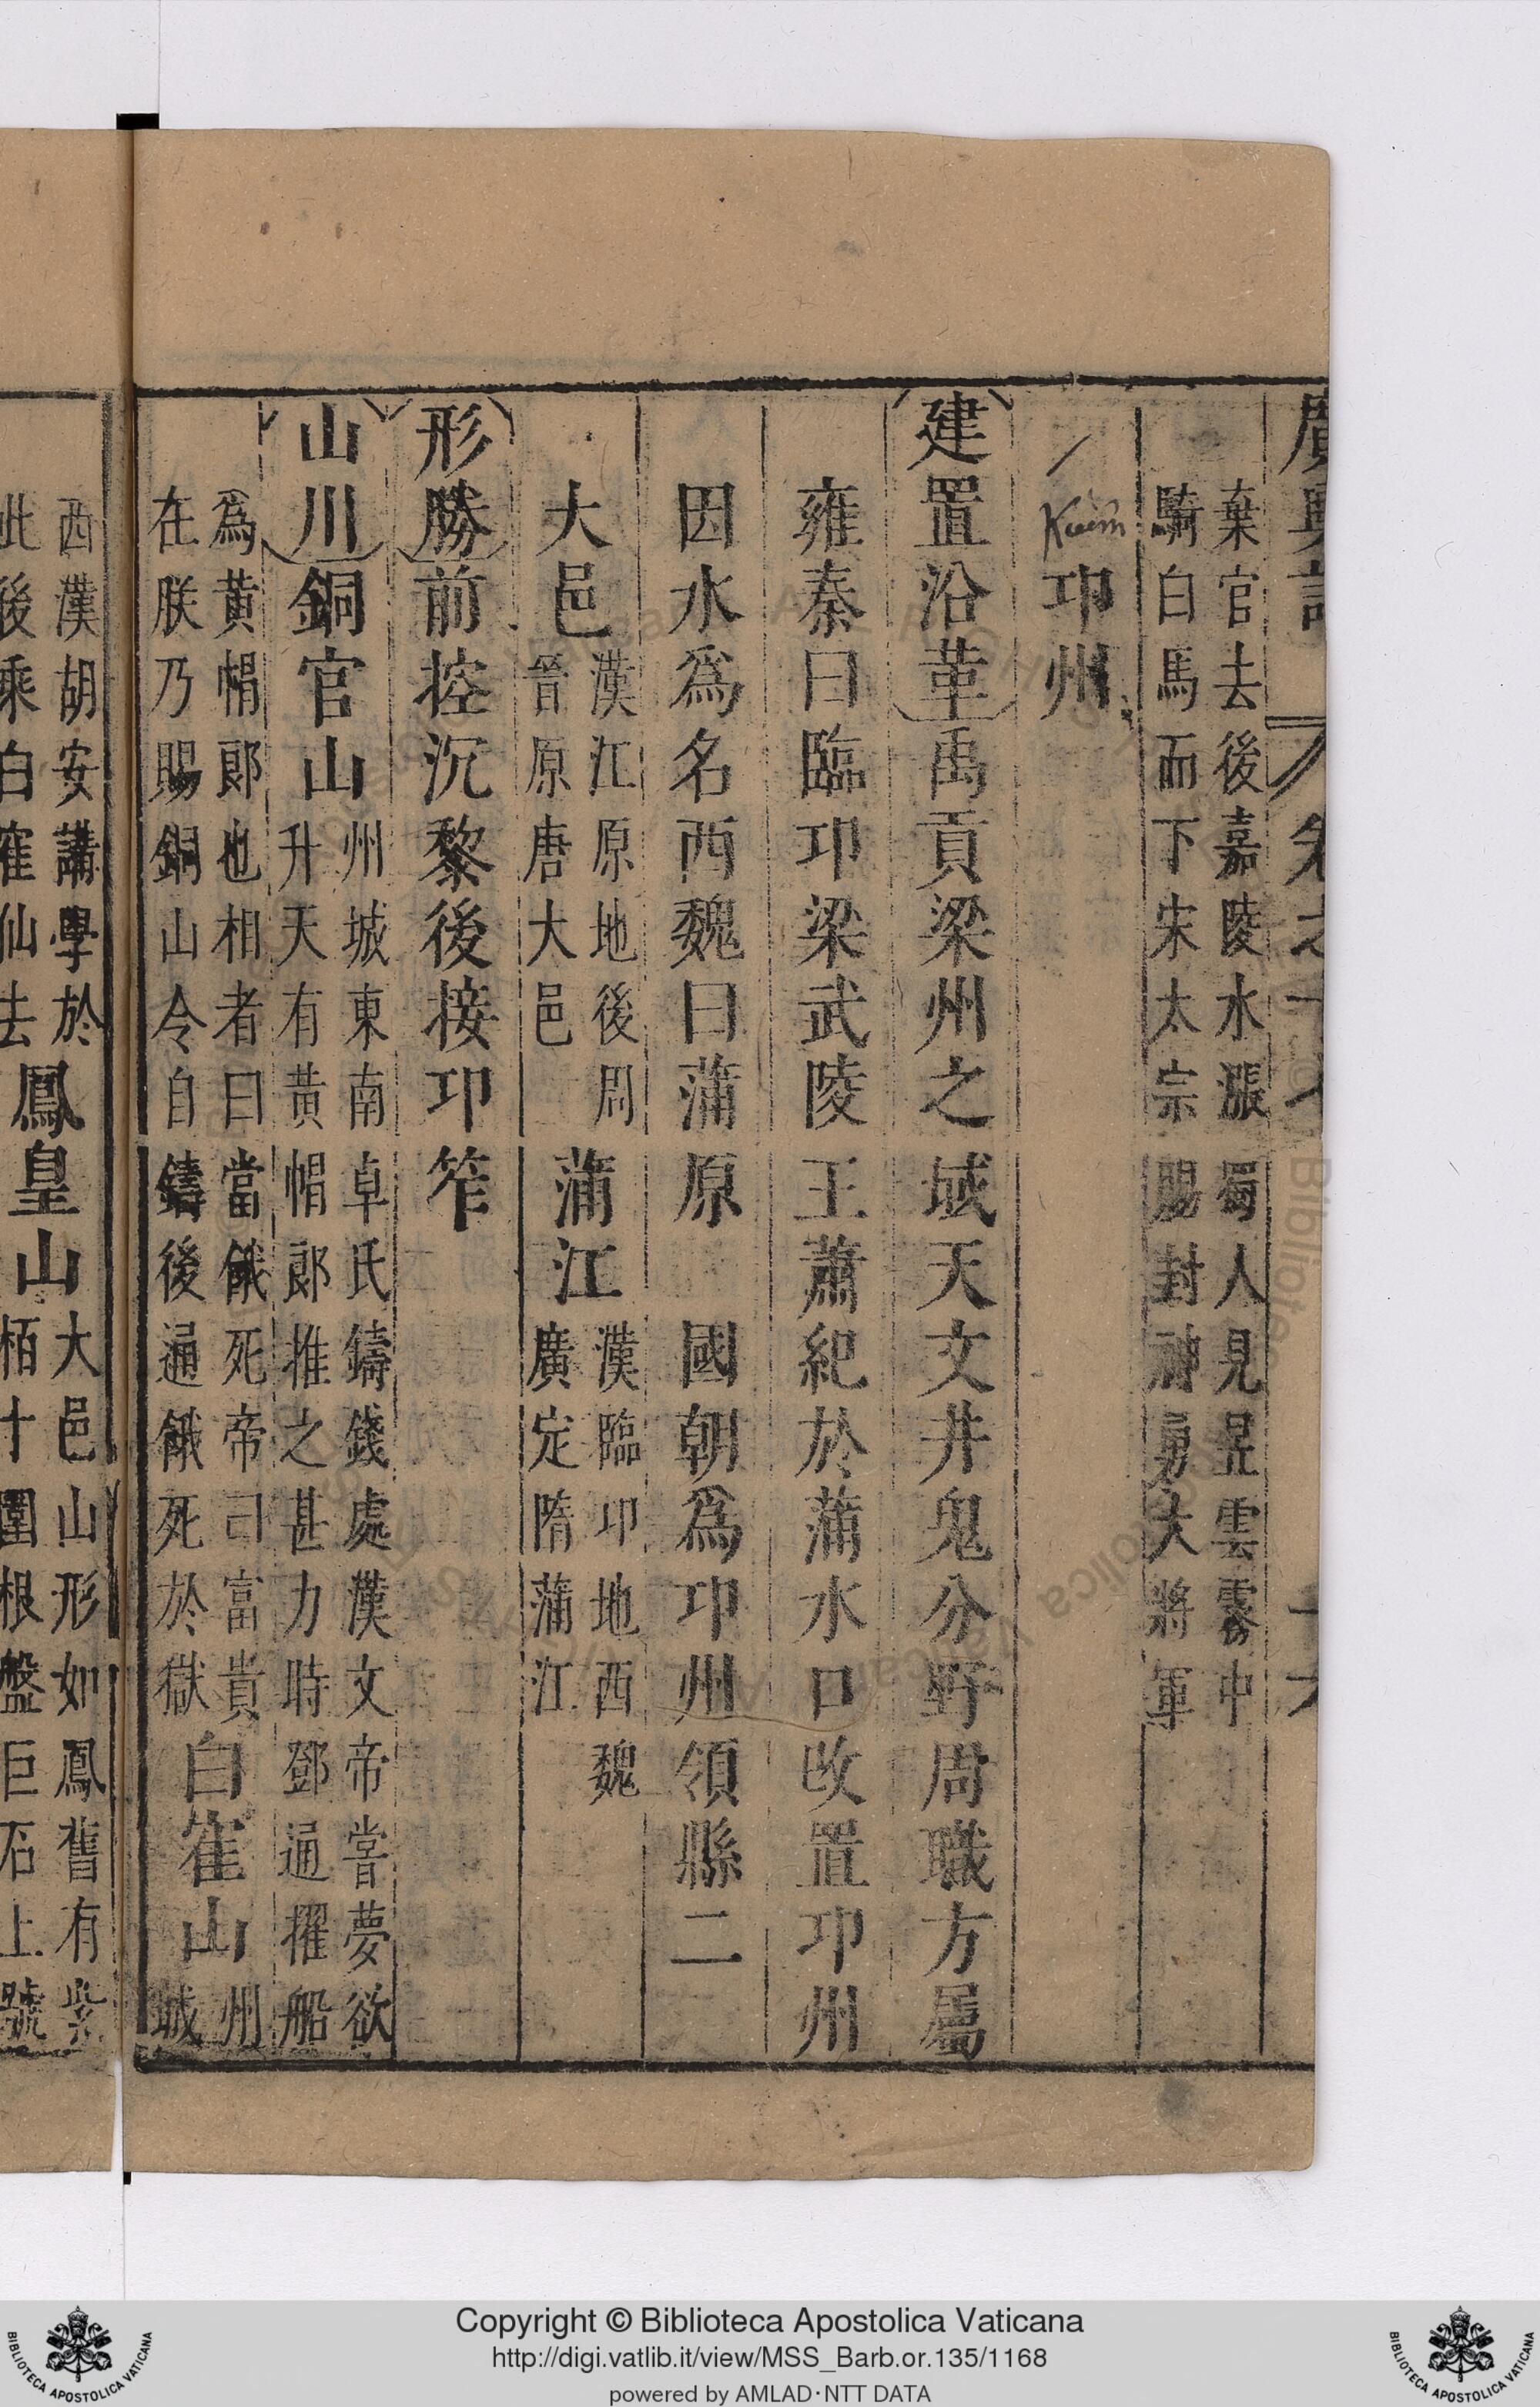 廣輿記 卷之十七 十六
棄官去後嘉陵水漲蜀人見昱雲霧中
騎白馬而下宋太宗賜封神勇大將軍
Kiúm 卭州
建置沿革禹貢梁州之域天文井鬼分野周職方屬
雍秦曰臨卭梁武陵王蕭紀於蒲水口改置卭州
因水爲名西魏曰蒲原 國朝爲卭州領縣二
大邑 漢江原地後周
晉原唐大邑
蒲江 漢臨卭地西魏
廣定隋蒲江
形勝前控沉黎後接卭筰
山川銅官山 州城東南卓氏鑄錢處漢文帝嘗夢欲
升天有黃帽郎推之甚力時鄧通擢船
爲黃帽郎也相者曰當餓死帝曰富貴
在朕乃賜銅山令自鑄後通餓死於獄
白崔山 州
城
西漢胡安講學於
此後乘白寉仙去
鳳皇山 大邑山形如鳳舊有紫
栢十圍根盤巨石上號
Copyright © Biblioteca Apostolica Vaticana
http://digi.vatlib.it/view/MSS_Barb.or.135/1168
powered by AMLAD·NTT DATA
BIBLIOTECA APOSTOLICA VATICANA
BIBLIOTECA APOSTOLICA VATICANA